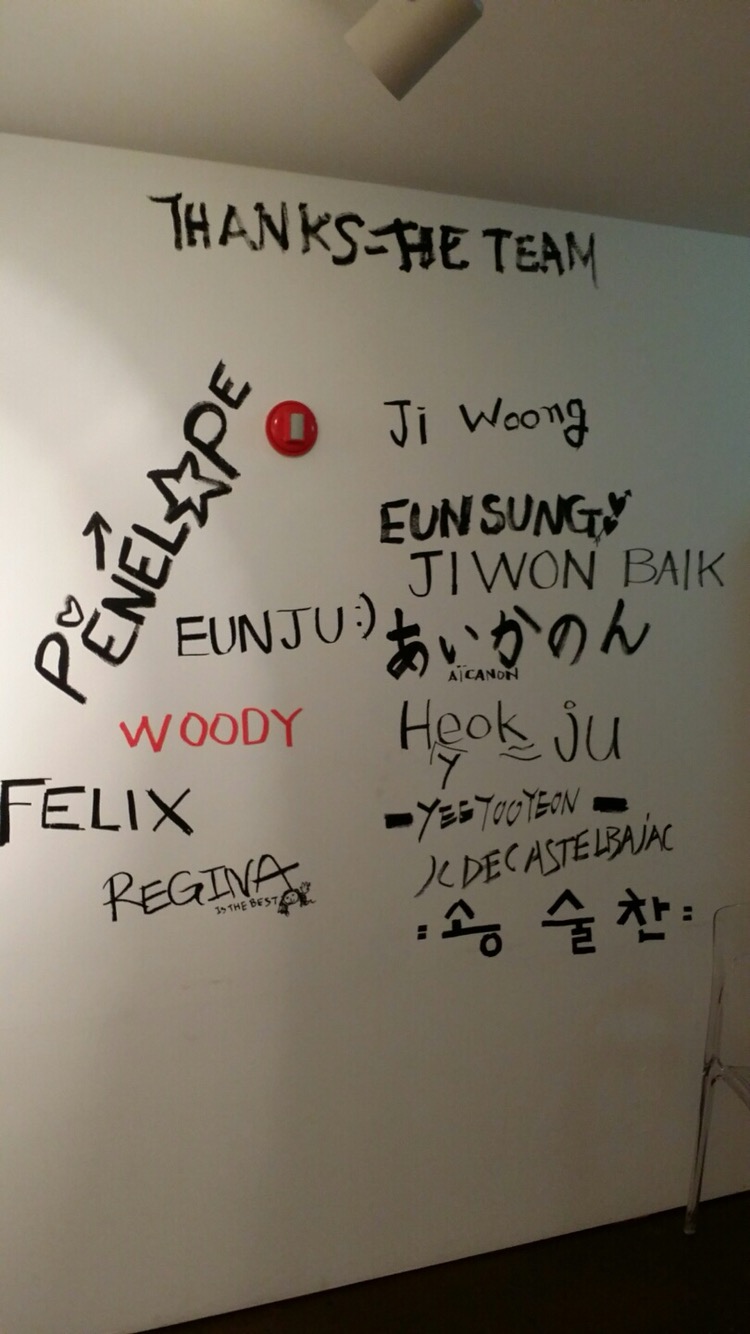 THANKS-THE TEAM
PENELOPE
Ji Woong
EUNSUNG
JIWON BAIK
EUNJU:)
あいかのん
AÏCANON
WOODY
Heok ju
y
FELIX
YEE YOO YEON
JC DE CASTELBAJAC
REGINA
IS THE BEST
: 송 술 찬 :